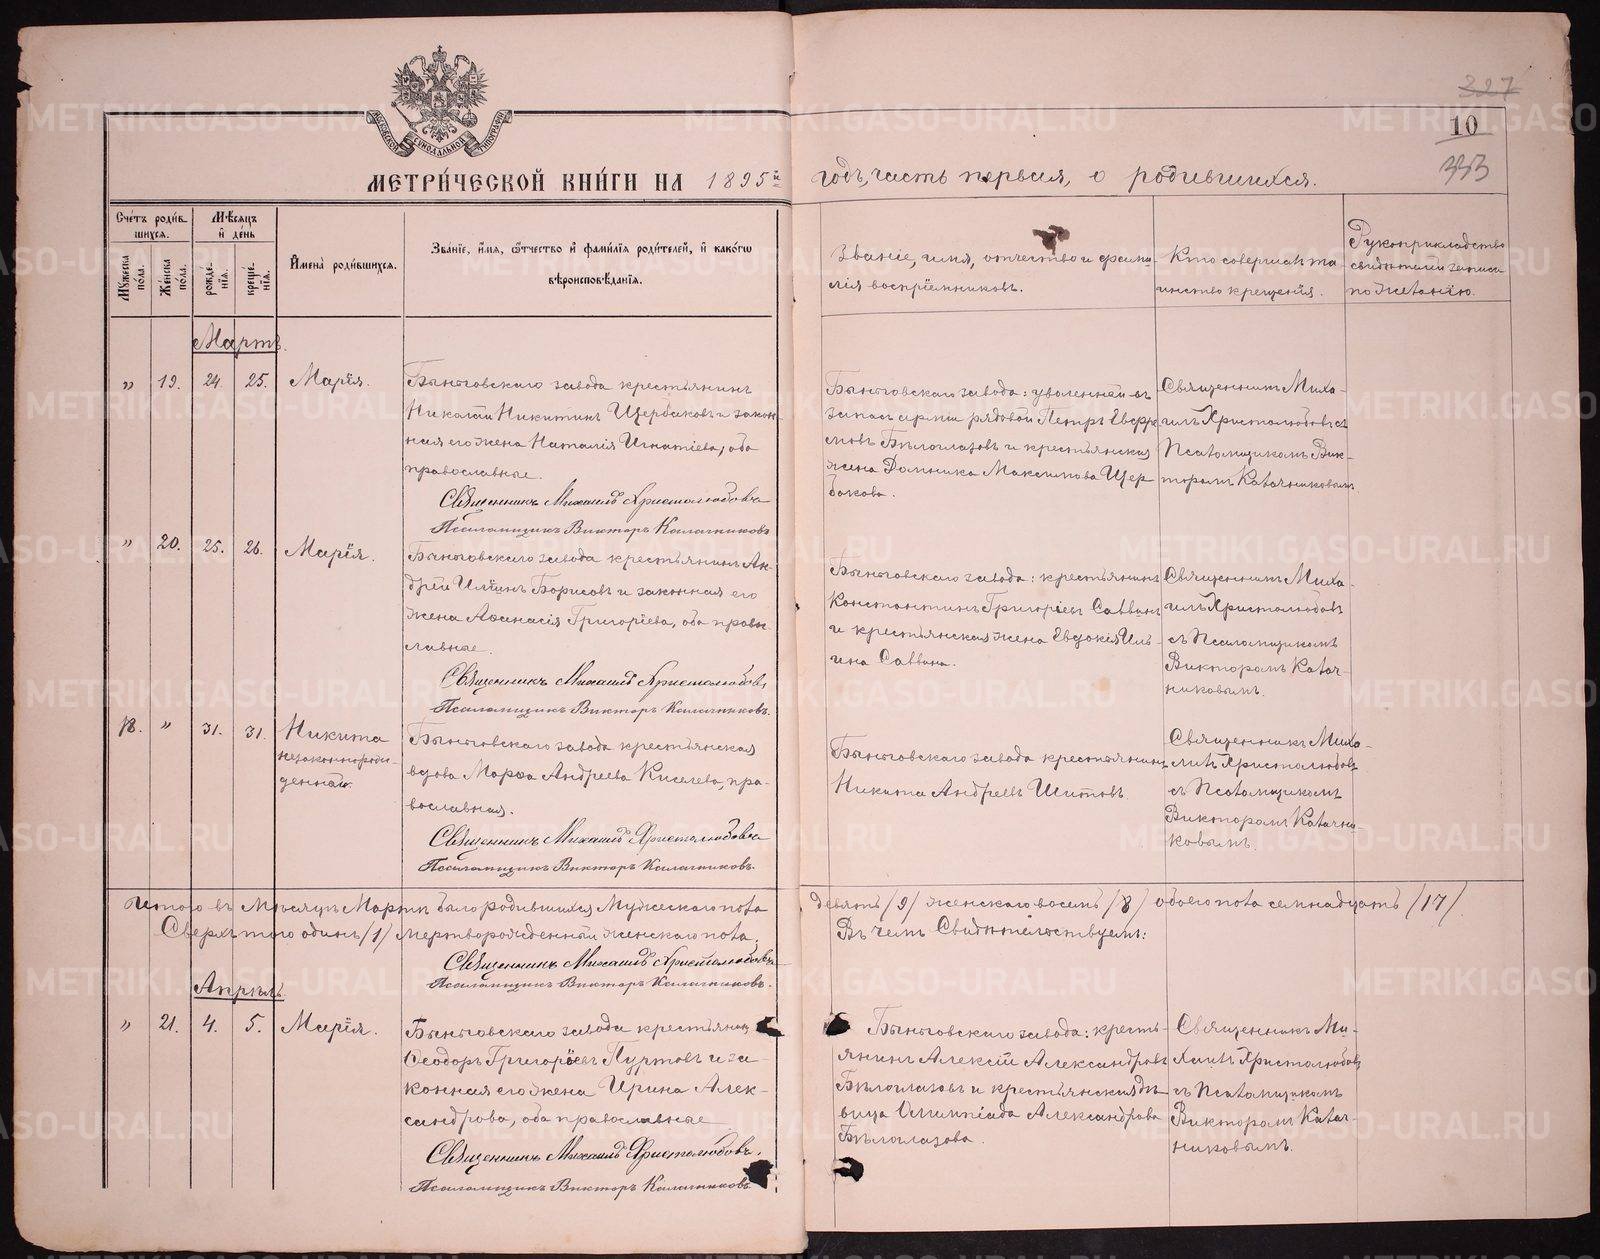 МОСКОВСКОЙ СѴНОДАЛЬНОЙ ТИПОГРАФІИ
МЕТРИ́ЧЕСКОЙ КНИ́ГИ НА 1895й
годъ, часть первая, о родившихся.
227
10
353
Сче́тъ роди́вшихся.
Мꙋ́жеска по́ла.
Же́нска по́ла.
Мѣ́сяцъ и҆ де́нь
рожде́нїѧ.
креще́нїѧ.
И҆мена̀ роди́вшихсѧ.
Зва́нїе, и҆́мѧ, ѻ҆́тчество и҆ фами́лїѧ роди́телей, и҆ како́гѡ
вѣроисповѣ́данїѧ.
Званіе, имя, отчество и фами-
лія воспріемниковъ.
Кто совершалъ та-
инство крещенія.
Рукоприкладство
свидѣтелей записи
по желанію.
Мартъ.
" 19. 24. 25. Марія.
Быньговскаго завода крестьянинъ
Николай Никитинъ Щербаковъ и закон-
ная его жена Наталія Игнатіева, оба
православные.
Священникъ Михаилъ Христолюбовъ
Псаломщикъ Викторъ Калачниковъ
Быньговскаго завода: уволенный въ
запасъ арміи рядовой Петръ Евфи-
мовъ Бѣлоглазовъ и крестьянская
жена Домника Максимова Щер-
бакова.
Священникъ Миха-
илъ Христолюбовъ съ
Псаломщикомъ Вик-
торомъ Калачниковымъ
" 20. 25. 26. Марія.
Быньговскаго завода крестьянинъ Ан-
дрей Ильинъ Борисовъ и законная его
жена Афанасія Григоріева, оба право-
славные.
Священникъ Михаилъ Христолюбовъ
Псаломщикъ Викторъ Калачниковъ.
Быньговскаго завода: крестьянинъ
Константинъ Григоріевъ Саввинъ
и крестьянская жена Евдокія Иль-
ина Саввина.
Священникъ Миха-
илъ Христолюбовъ
съ Псаломщикомъ
Викторомъ Калач-
никовымъ.
18. " 31. 31. Никита
незаконнорож-
денный.
Быньговскаго завода крестьянская
вдова Марфа Андреева Киселева, пра-
вославная.
Священникъ Михаилъ Христолюбовъ
Псаломщикъ Викторъ Калачниковъ.
Быньговскаго завода крестьянинъ
Никита Андреевъ Шитовъ.
Священникъ Миха-
илъ Христолюбовъ
съ Псаломщикомъ
Викторомъ Калачни-
ковымъ.
Итого въ Мѣсяцѣ Мартѣ было родившихся Мужескаго пола девять /9/ женскаго восемь /8/ обоего пола семнадцать /17/
Сверхъ того одинъ /1/ мертворожденный женскаго пола, Въ чемъ Свидѣтельствуемъ:
Священникъ Михаилъ Христолюбовъ
Псаломщикъ Викторъ Калачниковъ.
Апрѣль
" 21. 4. 5. Марія.
Быньговскаго завода крестьянинъ
Ѳеодоръ Григорьевъ Пуртовъ и за-
конная его жена Ирина Алек-
сандрова, оба православные
Священникъ Михаилъ Христолюбовъ.
Псаломщикъ Викторъ Калачниковъ
Быньговскаго завода: кресть-
янинъ Алексій Александровъ
Бѣлоглазовъ и крестьянская дѣ-
вица Олимпіада Александрова
Бѣлоглазова.
Священникъ Ми-
хаилъ Христолюбовъ
съ Псаломщикомъ
Викторомъ Калач-
никовымъ.
METRIKI.GASO-URAL.RU